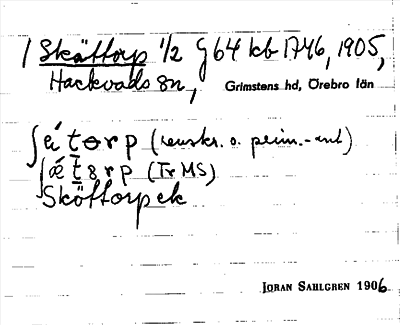 1 Sköttorp 1/2 g 64 kb 1746, 1905,
Hackvads sn, Grimstens hd, Örebro län
ʃǽtorp (renskr. o. prim.-ant)
ʃǽt8rp (Tr MS)
Sköttorpek
JÖRAN SAHLGREN 1906